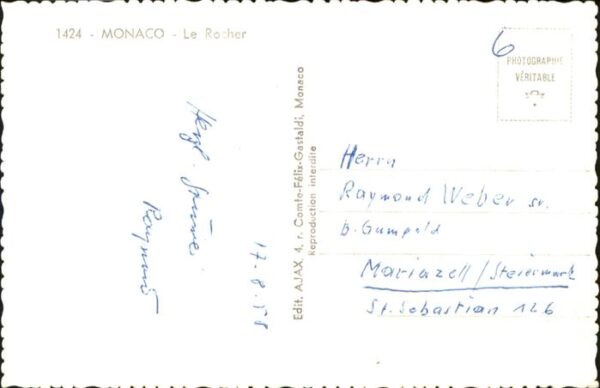 1424 - MONACO - Le Rocher
6
PHOTOGRAPHIE
VÉRITABLE
Herzl. Grüße
Raymund
17.8.58
Edit. AJAX, 4, r. Comte-Félix-Gastaldi, Monaco
Reproduction interdite
Herrn
Raymond Weber sr.
b. Gumpold
Mariazell/Steiermark
St. Sebastian 126